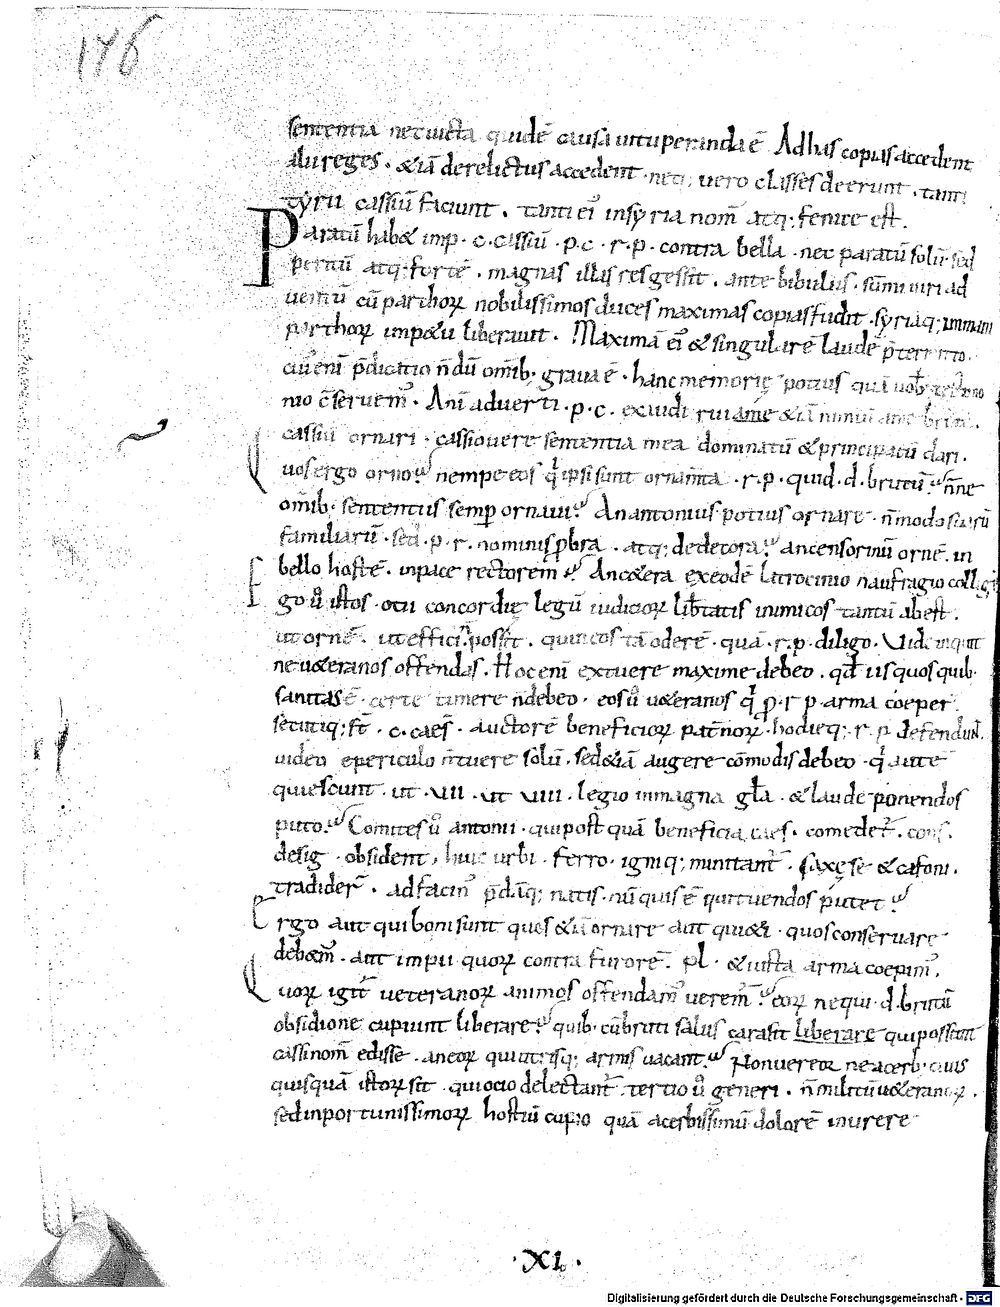 146
sententia nec iusta quidē causa uituperanda ē Ad has copias accedent
alii reges · & iā derelictus accedent · neq; uero classes deerunt · tanti
tyrii cassiū faciunt · tanti ei insyria nom̄ atq; fenice est ·
Paratū hab& imp · c · cassiū · p · c · r · p · contra bella · nec paratū solū · sed
peritū atq; fortē · magnas illas res gessit · ante bibulus · sūmi uiri ad
uentū cū parthoꝝ nobilissimos duces maximas copias fudit · syriaq; immani
parthoꝝ imp&u liberauit · Maximā ei & singularē laudē
cui eni p̄dicatio n̄dū omib; grata ē · hanc memorię potius quā
nio c̄seruem · Ani aduerti · p · c · exaudi
cassiū ornari · cassio uere sententia mea dominatū & principatū dari ·
uos ergo orno? nempe eos qͥ ipsi sunt ornam̄ta · r · p · quid · d · brutū? n̄ne
omib; sententiis semp ornaui? An antonius potius ornare · n̄ modo suoꝝ
familiariū · sed · p · r · nominis p̄bra · atq; dedecora? an censorinū ornē · in
bello hostē · in pace rectorem? An c&era ex eodē latrocinio naufragio collig
Ego uͦ istos · otii concordię legū iudicioꝝ lib̄tatis inimicos tantū abest ·
ut ornē · ut effici possit · quin eos tā oderē · quā · r · p · diligo · Vide inquit
ne u&eranos offendas · Hoc eni extuere maxime debeo · qd̄ iis quos quib;
sanitas ē · certe timere n̄ debeo · eos uͦ u&eranos qͥ p · r · p · arma coeper
secutiq; st̄ · c · caes̄ · auctorē beneficioꝝ pat̄noꝝ · hodieq; · r · p · defendun̄
uideo e periculo n̄ tuere solū · sed &iā augere cōmodis debeo · qͥ autē
quiescunt · ut · VII · ut VIII · legio in magna gla · & laude ponendos
puto? Comites uͦ antonii · qui post quā beneficia caes · comeder̄ · cons ·
desig · obsident, huic urbi · ferro · igniq; minitant̄ · saxę se & cafoni ·
tradider̄ · ad facin p̄dāq; natis · nū quis ē qui tuendos putet?
Ergo aut qui boni sunt quos &iā ornare aut qui&i · quos conseruare
debem̄ · aut impii quoꝝ contra furorē · pl · & iusta arma coepim ·
Quoꝝ igit̄ ueteranoꝝ animos offendam uerem? eoꝝ nequi · d · brutū
obsidione cupiunt liberare? quib; cū bruti salus cara sit liberare qui possunt
cassi nom̄ edisse · an eoꝝ qui utrisq; armis uacant? Non uereor ne acerb; ciuis
quisquā istoꝝ sit · qui ocio delectant̄ · tertio uͦ generi · n̄ militū u&eranoꝝ ·
sed inportunissimoꝝ hostiū cupio quā acerbissimū dolorē inurere
· XI ·
Digitalisierung gefördert durch die Deutsche Forschungsgemeinschaft · DFG